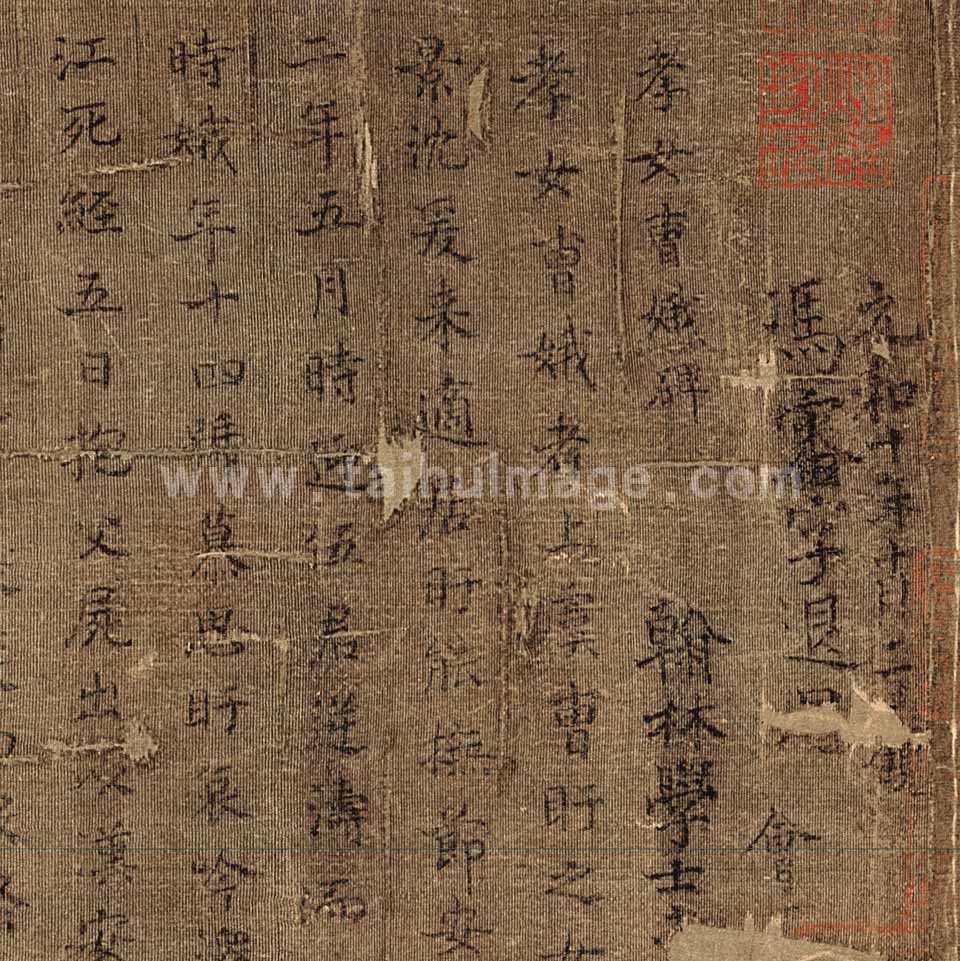 元和十年十月二
馮審字退
會
翰林學士
孝女曹娥碑
孝女曹娥者上虞曹盱之女
景沈爰来適居盱能撫節安
二年五月時迎伍君逆濤而
時娥年十四號慕思盱哀吟澤
江死経五日抱父屍出以漢安
www.taihuimage.com